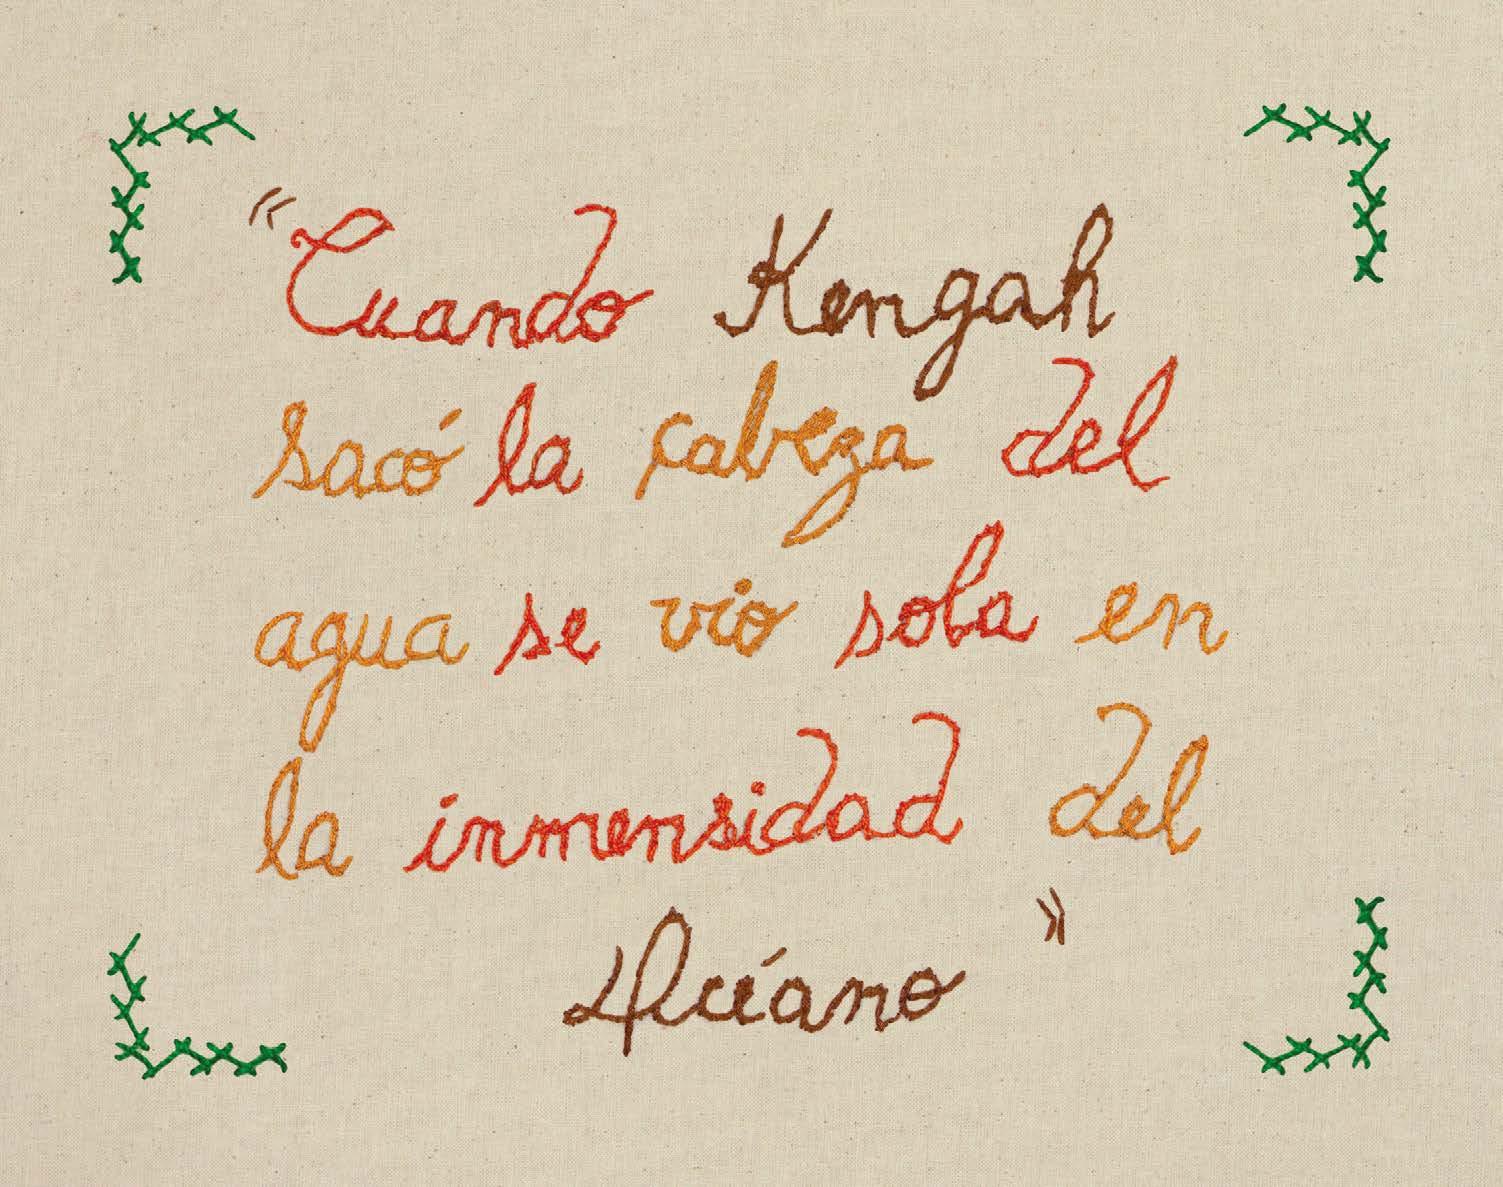 «Cuando Kengah
sacó la cabeza del
agua se vio sola en
la inmensidad del
Océano»